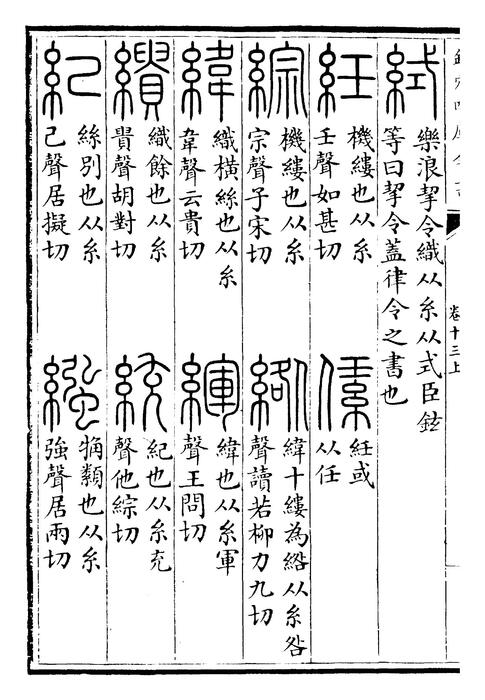 卷十三上
𥿮
樂浪挈令織从糸从式臣鉉
等曰挈令蓋律令之書也
紝
機縷也从糸
壬聲如甚切
絍
紝或
从任
綜
機縷也从糸
宗聲子宋切
綹
緯十縷為綹从糸咎
聲讀若柳力九切
緯
織橫絲也从糸
韋聲云貴切
緷
緯也从糸軍
聲王問切
繢
織餘也从糸
貴聲胡對切
統
紀也从糸充
聲他綜切
紀
絲別也从糸
己聲居擬切
繈
觕纇也从糸
強聲居兩切